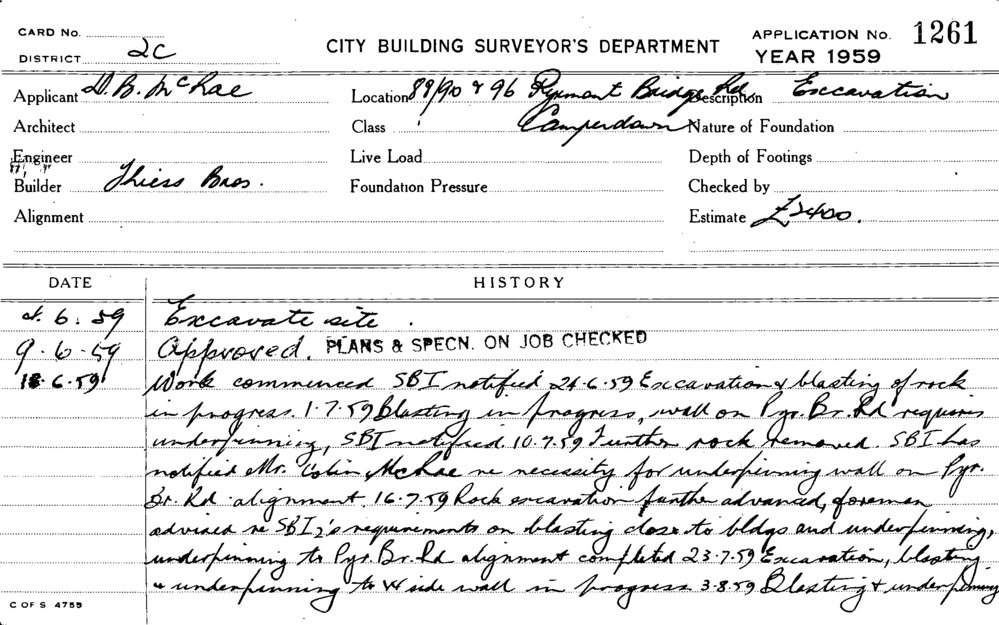 CARD No.
DISTRICT 2C
CITY BUILDING SURVEYOR'S DEPARTMENT
APPLICATION No. 1261
YEAR 1959
Applicant D. B. McRae
Location 88/90 & 96 Pyrmont Bridge Rd
Description Excavation
Architect
Class Camperdown
Nature of Foundation
Engineer
Live Load
Depth of Footings
Builder Thiess Bros.
Foundation Pressure
Checked by
Alignment
Estimate £2400.
DATE
HISTORY
6. 59 Excavate site.
9-6-59 Approved. PLANS & SPECN. ON JOB CHECKED
18-6-59 Work commenced SBI notified 24-6-59 Excavation & blasting of rock
in progress. 1-7-59 Blasting in progress, wall on Pyr. Br. Rd requires
underpinning, SBI notified. 10.7.59 Further rock removed. SBI has
notified Mr. Colin McRae re necessity for underpinning wall on Pyr.
Br. Rd alignment. 16-7-59 Rock excavation further advanced, foreman
advised re SBI2's requirements on blasting close to bldgs and underpinning,
underpinning to Pyr. Br. Rd alignment completed 23-7-59 Excavation, blasting
& underpinning to W side wall in progress 3-8-59 Blasting & underpinning
C OF S 4759